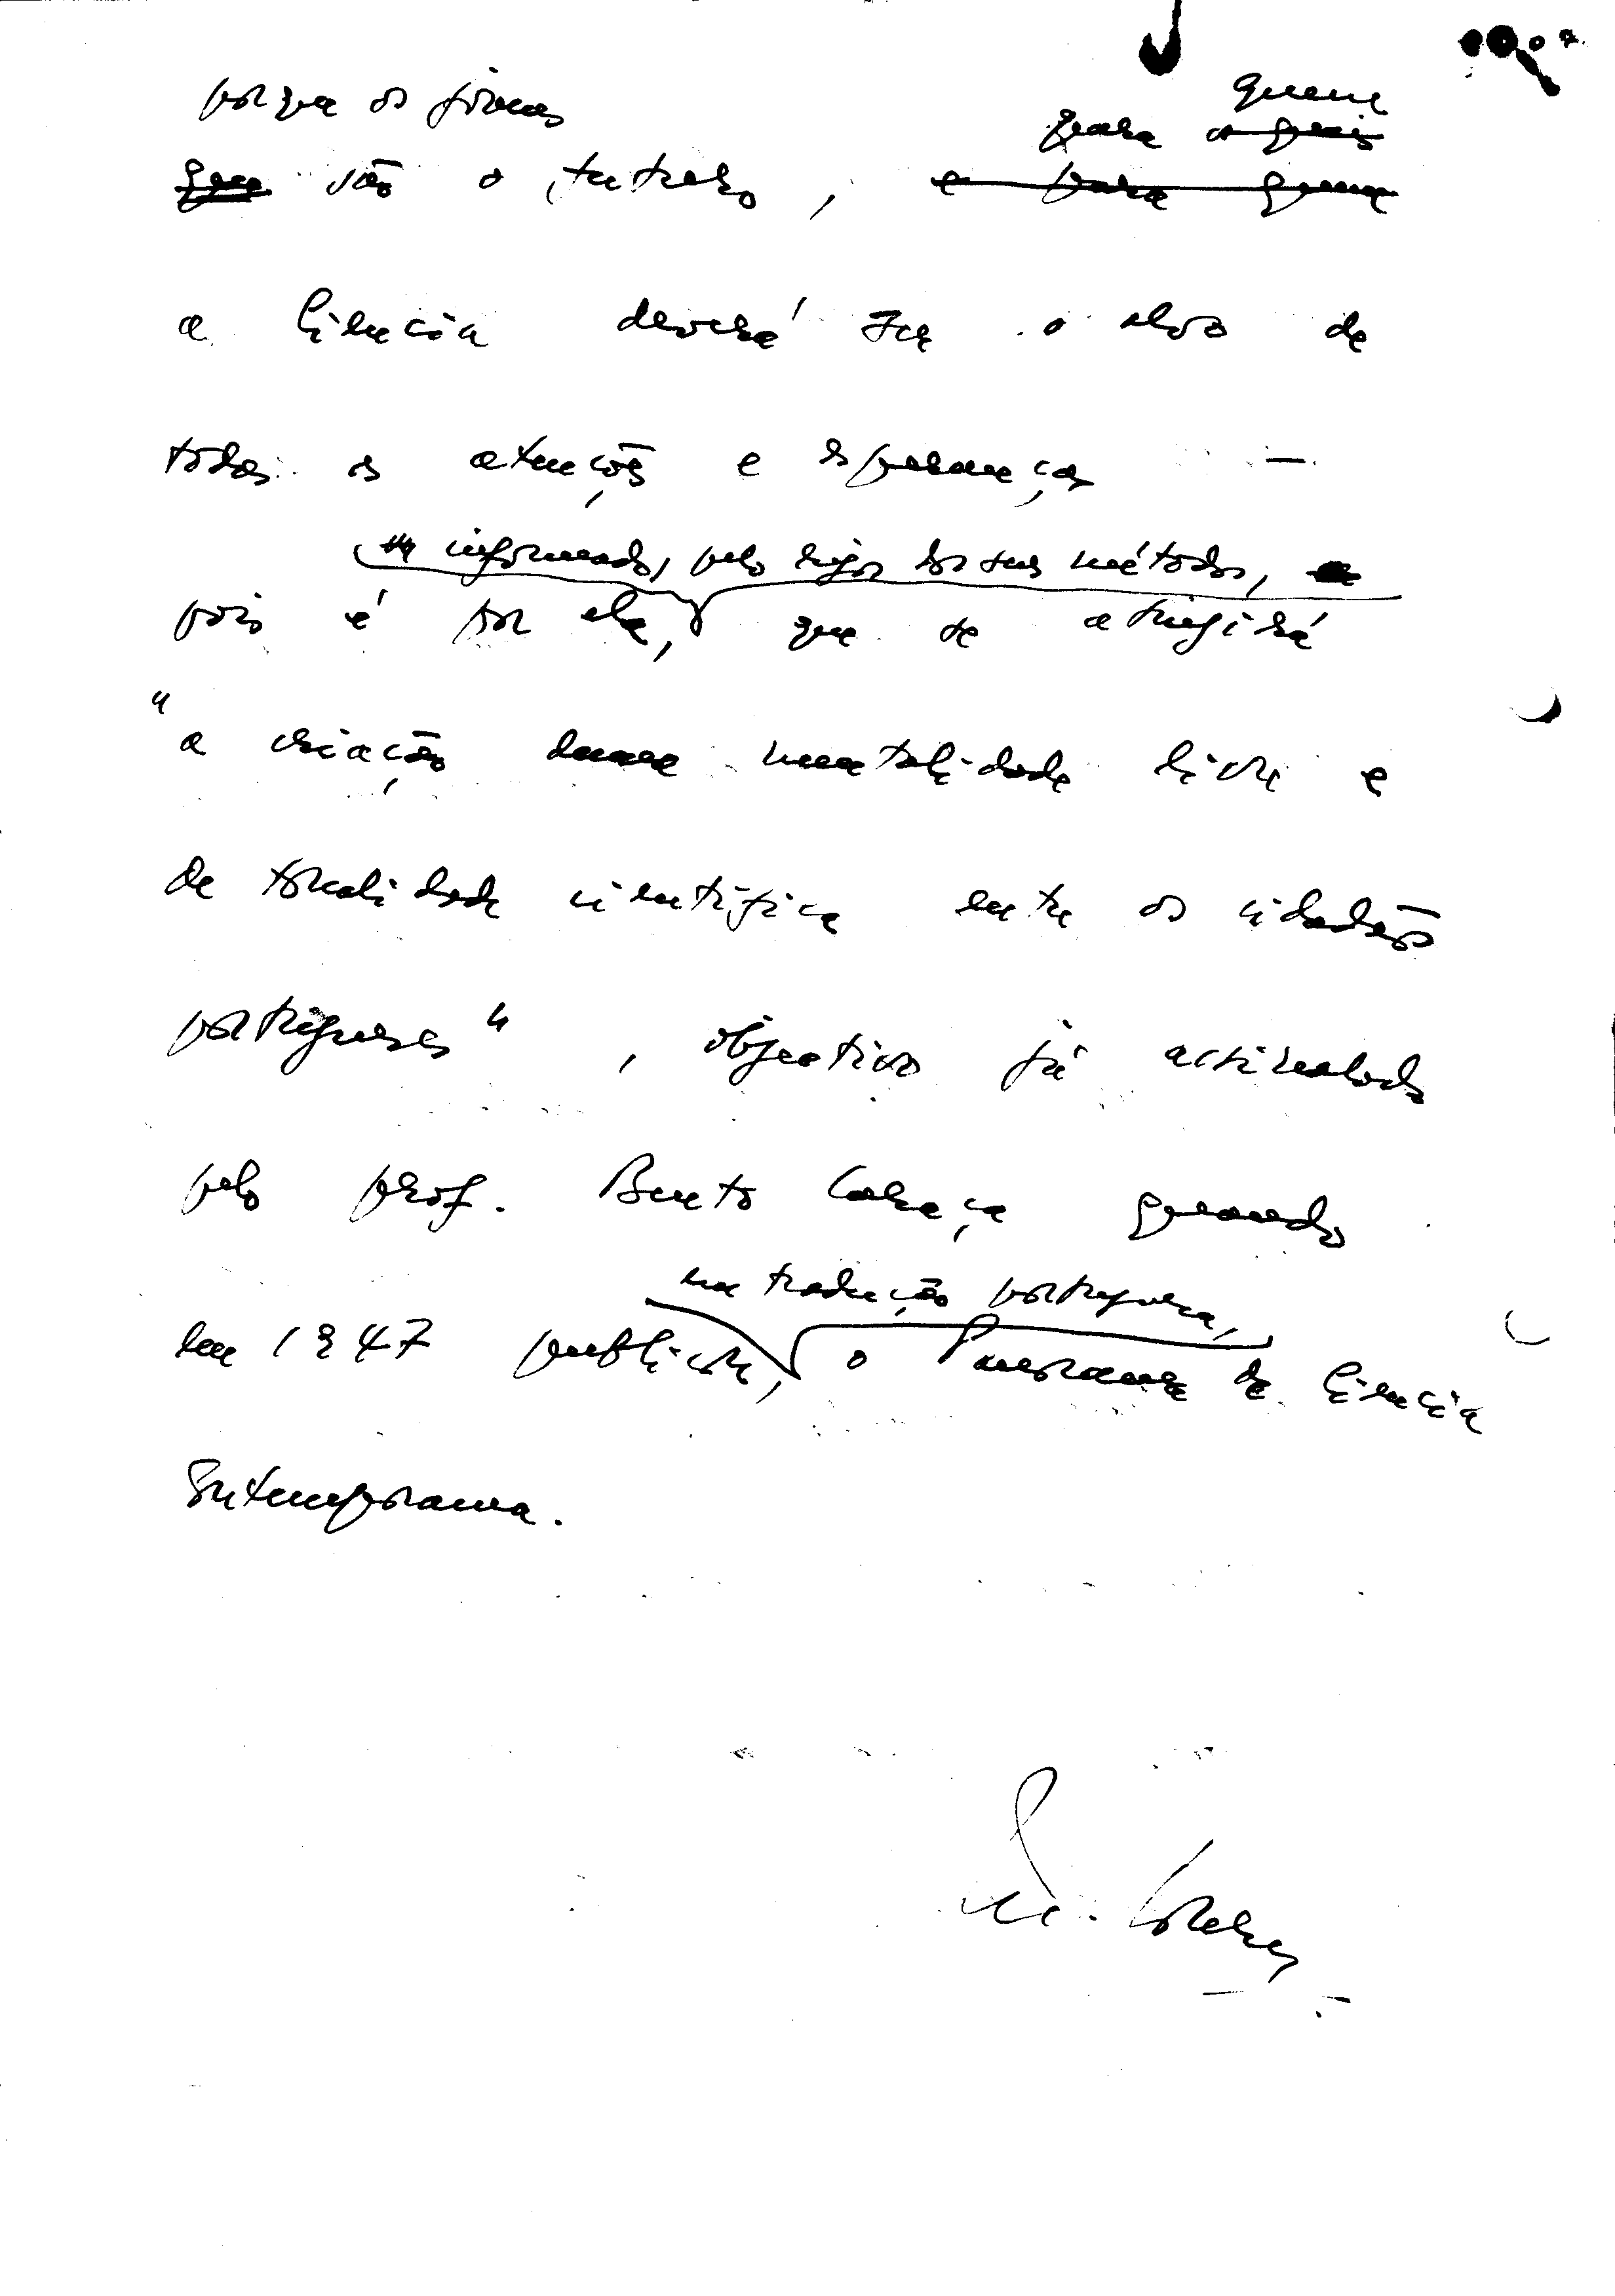 porque os jovens
quem
para os quais
que são o futuro, e para quem
a Ciência deverá ser o alvo de
todas as atenções e esperanças —
informados, pelo rigor dos seus métodos,
pois é por ela, que se atingirá
"a criação duma mentalidade livre e
de tonalidade científica entre os cidadãos
portugueses", objectivo já assinalado
pelo prof. Bento Caraça quando
na tradução portuguesa,
em 1947 publicou, o Panorama da Ciência
Contemporanea.